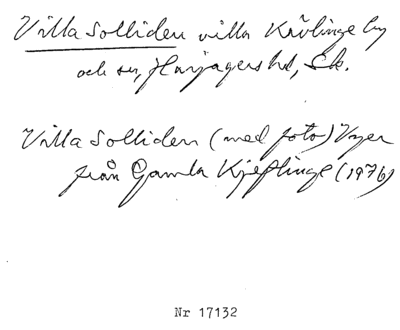 Villa Solliden villa Kävlinge by
och sn, Harjagers hd, Sk.
Villa Solliden (med foto) Vyer
från Gamla Kjeflinge (1976)
Nr 17132